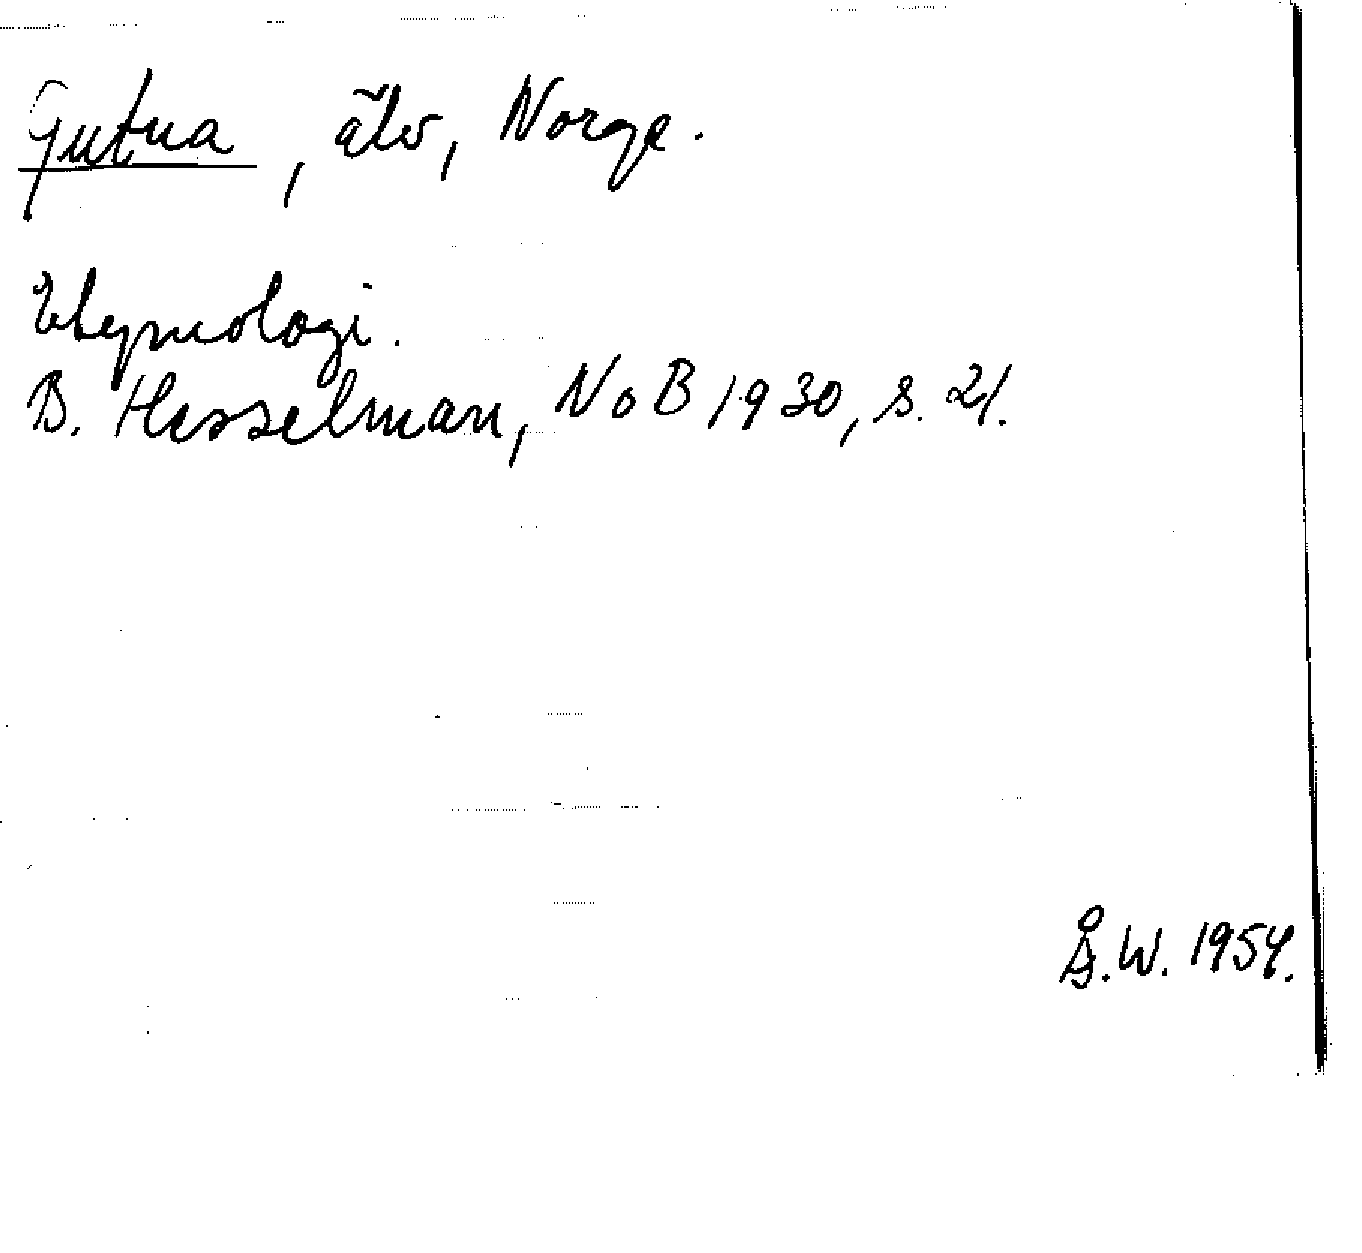 Gutua, älv, Norge.
Etymologi.
B. Hesselman, NoB 1930, s. 21.
Å.W. 1954.